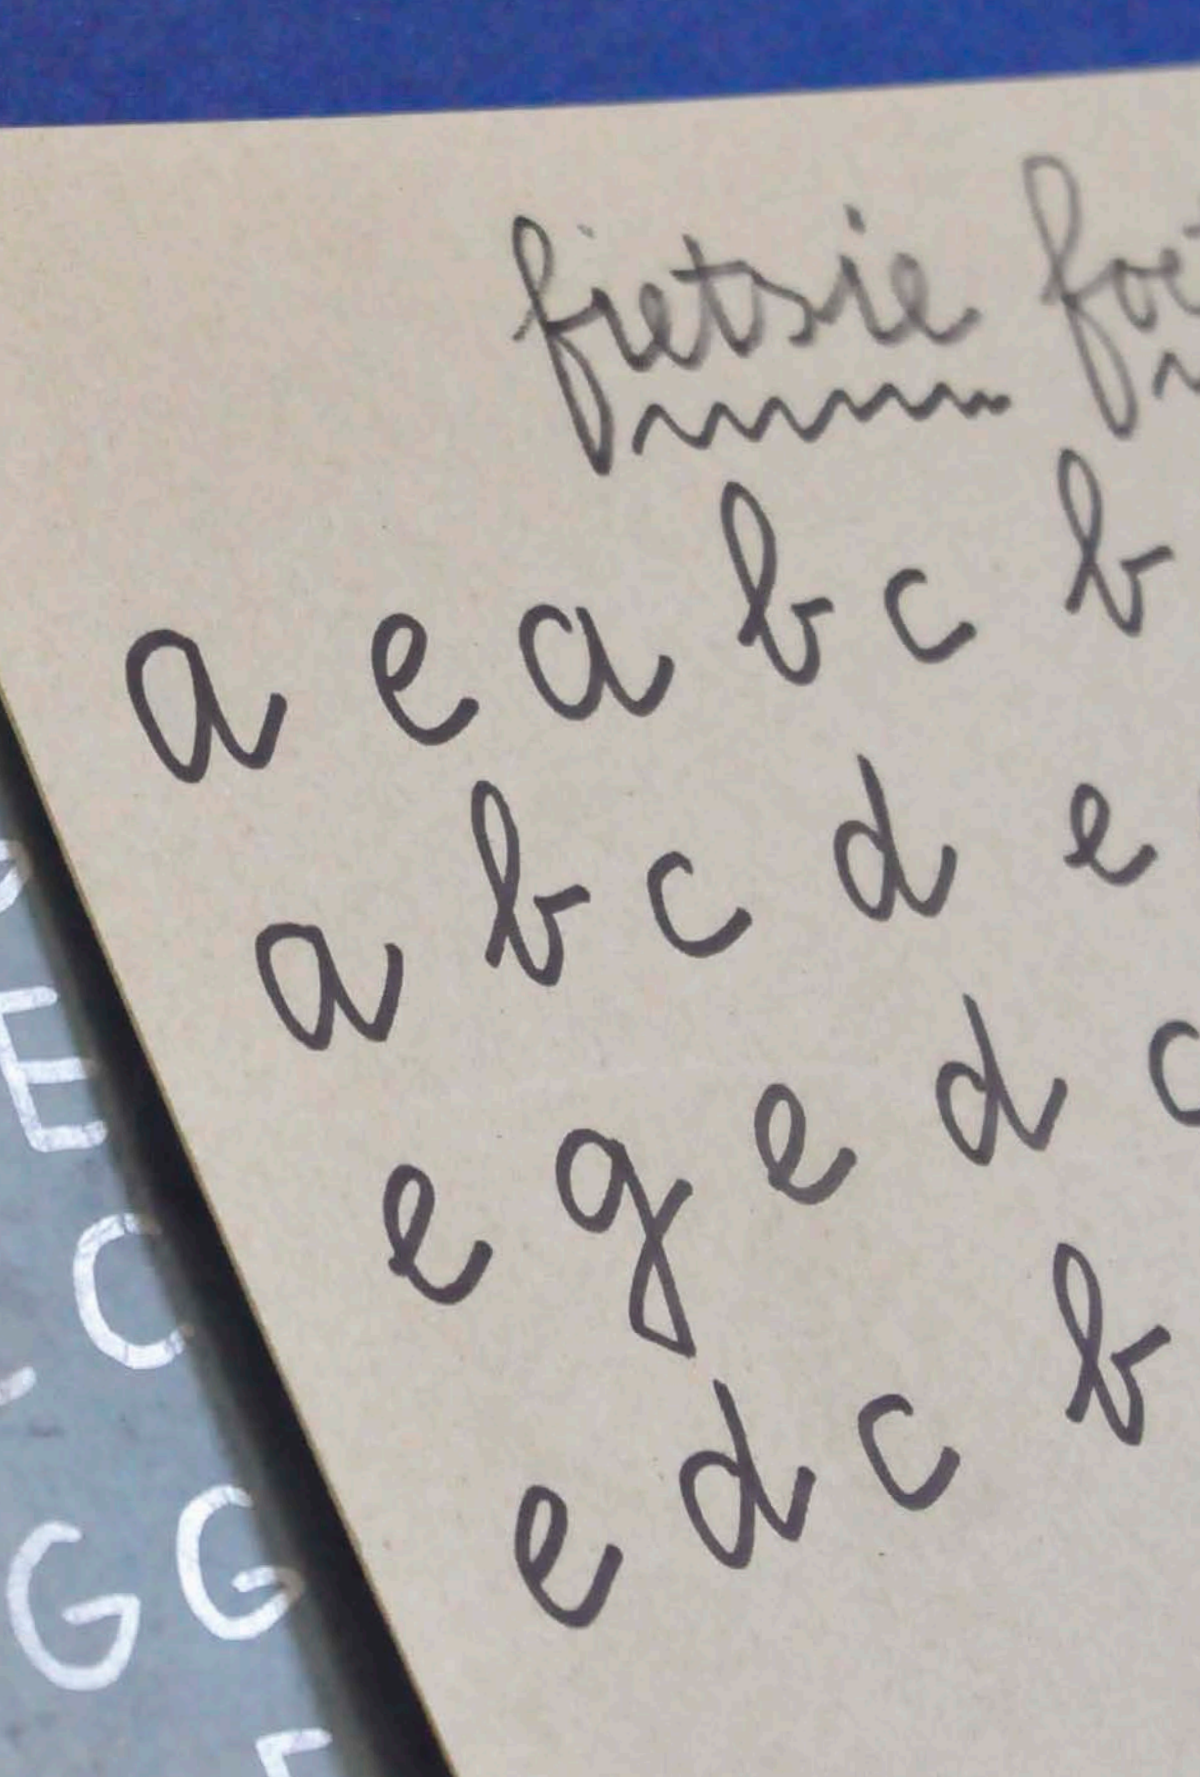 fietsie
a e a b c b
a b c d e
e g e d c
e d c b
E
C
G G